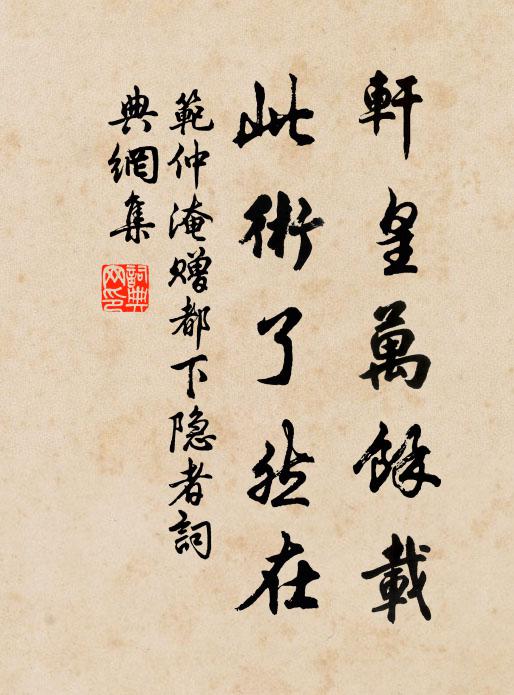 軒皇萬餘載
此術了然在
範仲淹贈都下隐者詞
典網集
詞典
网印